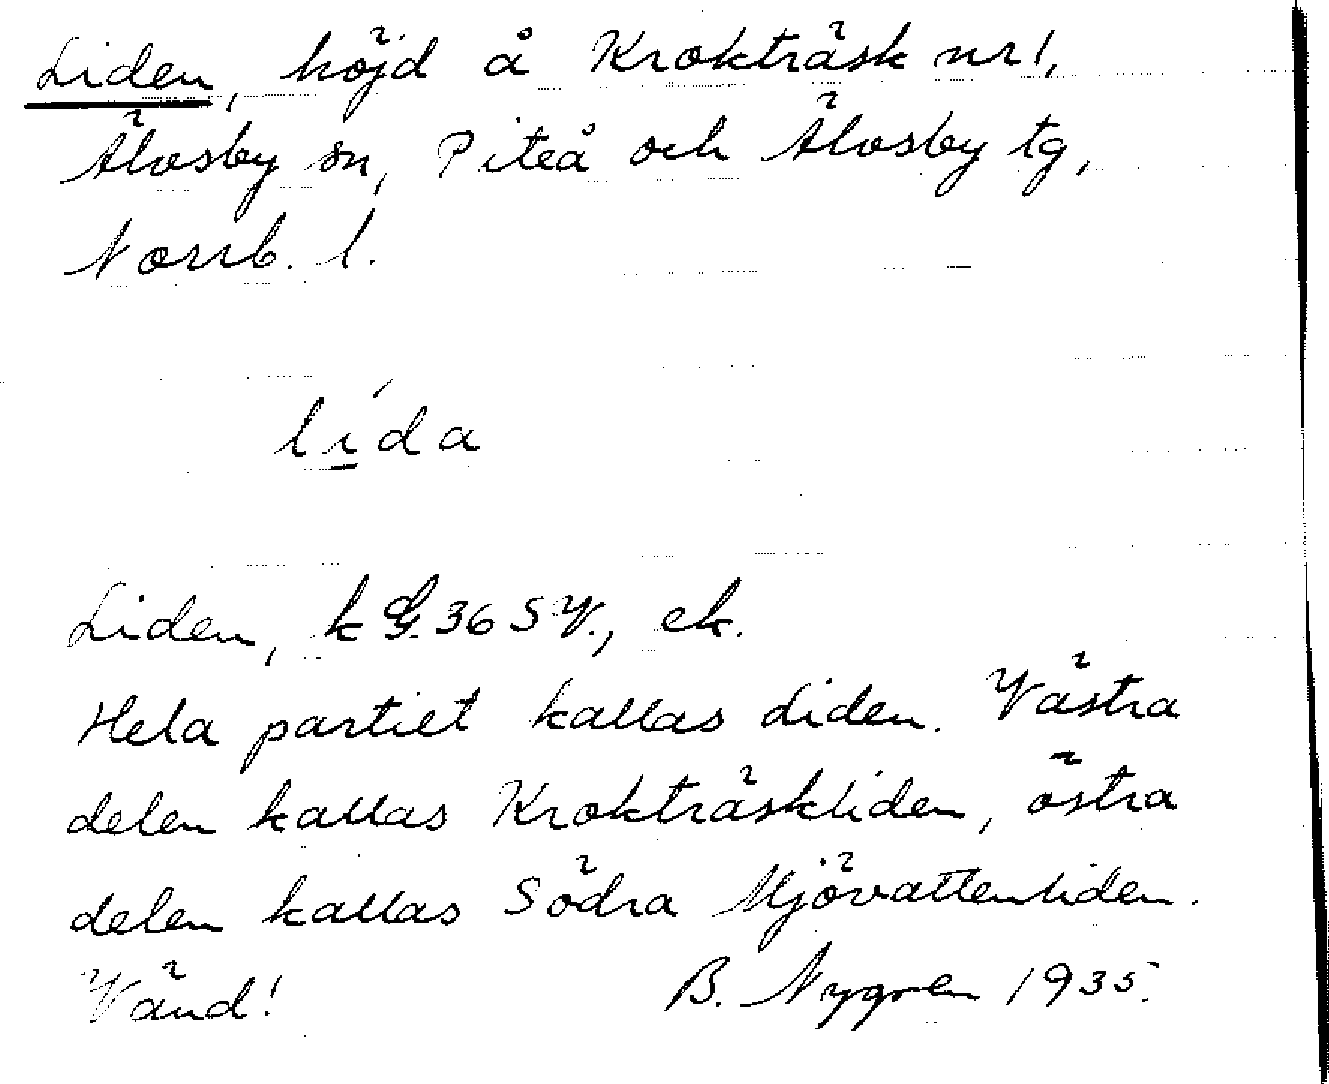 Liden, höjd å Krokträsk nr 1,
Älvsby sn, Piteå och Älvsby tg,
Norrb. l.
lída
Liden, k G. 36 SV., ek.
Hela partiet kallas Liden. Västra
delen kallas Krokträskliden, östra
delen kallas Södra Mjövattenliden.
Vänd! B. Nygren 1935.